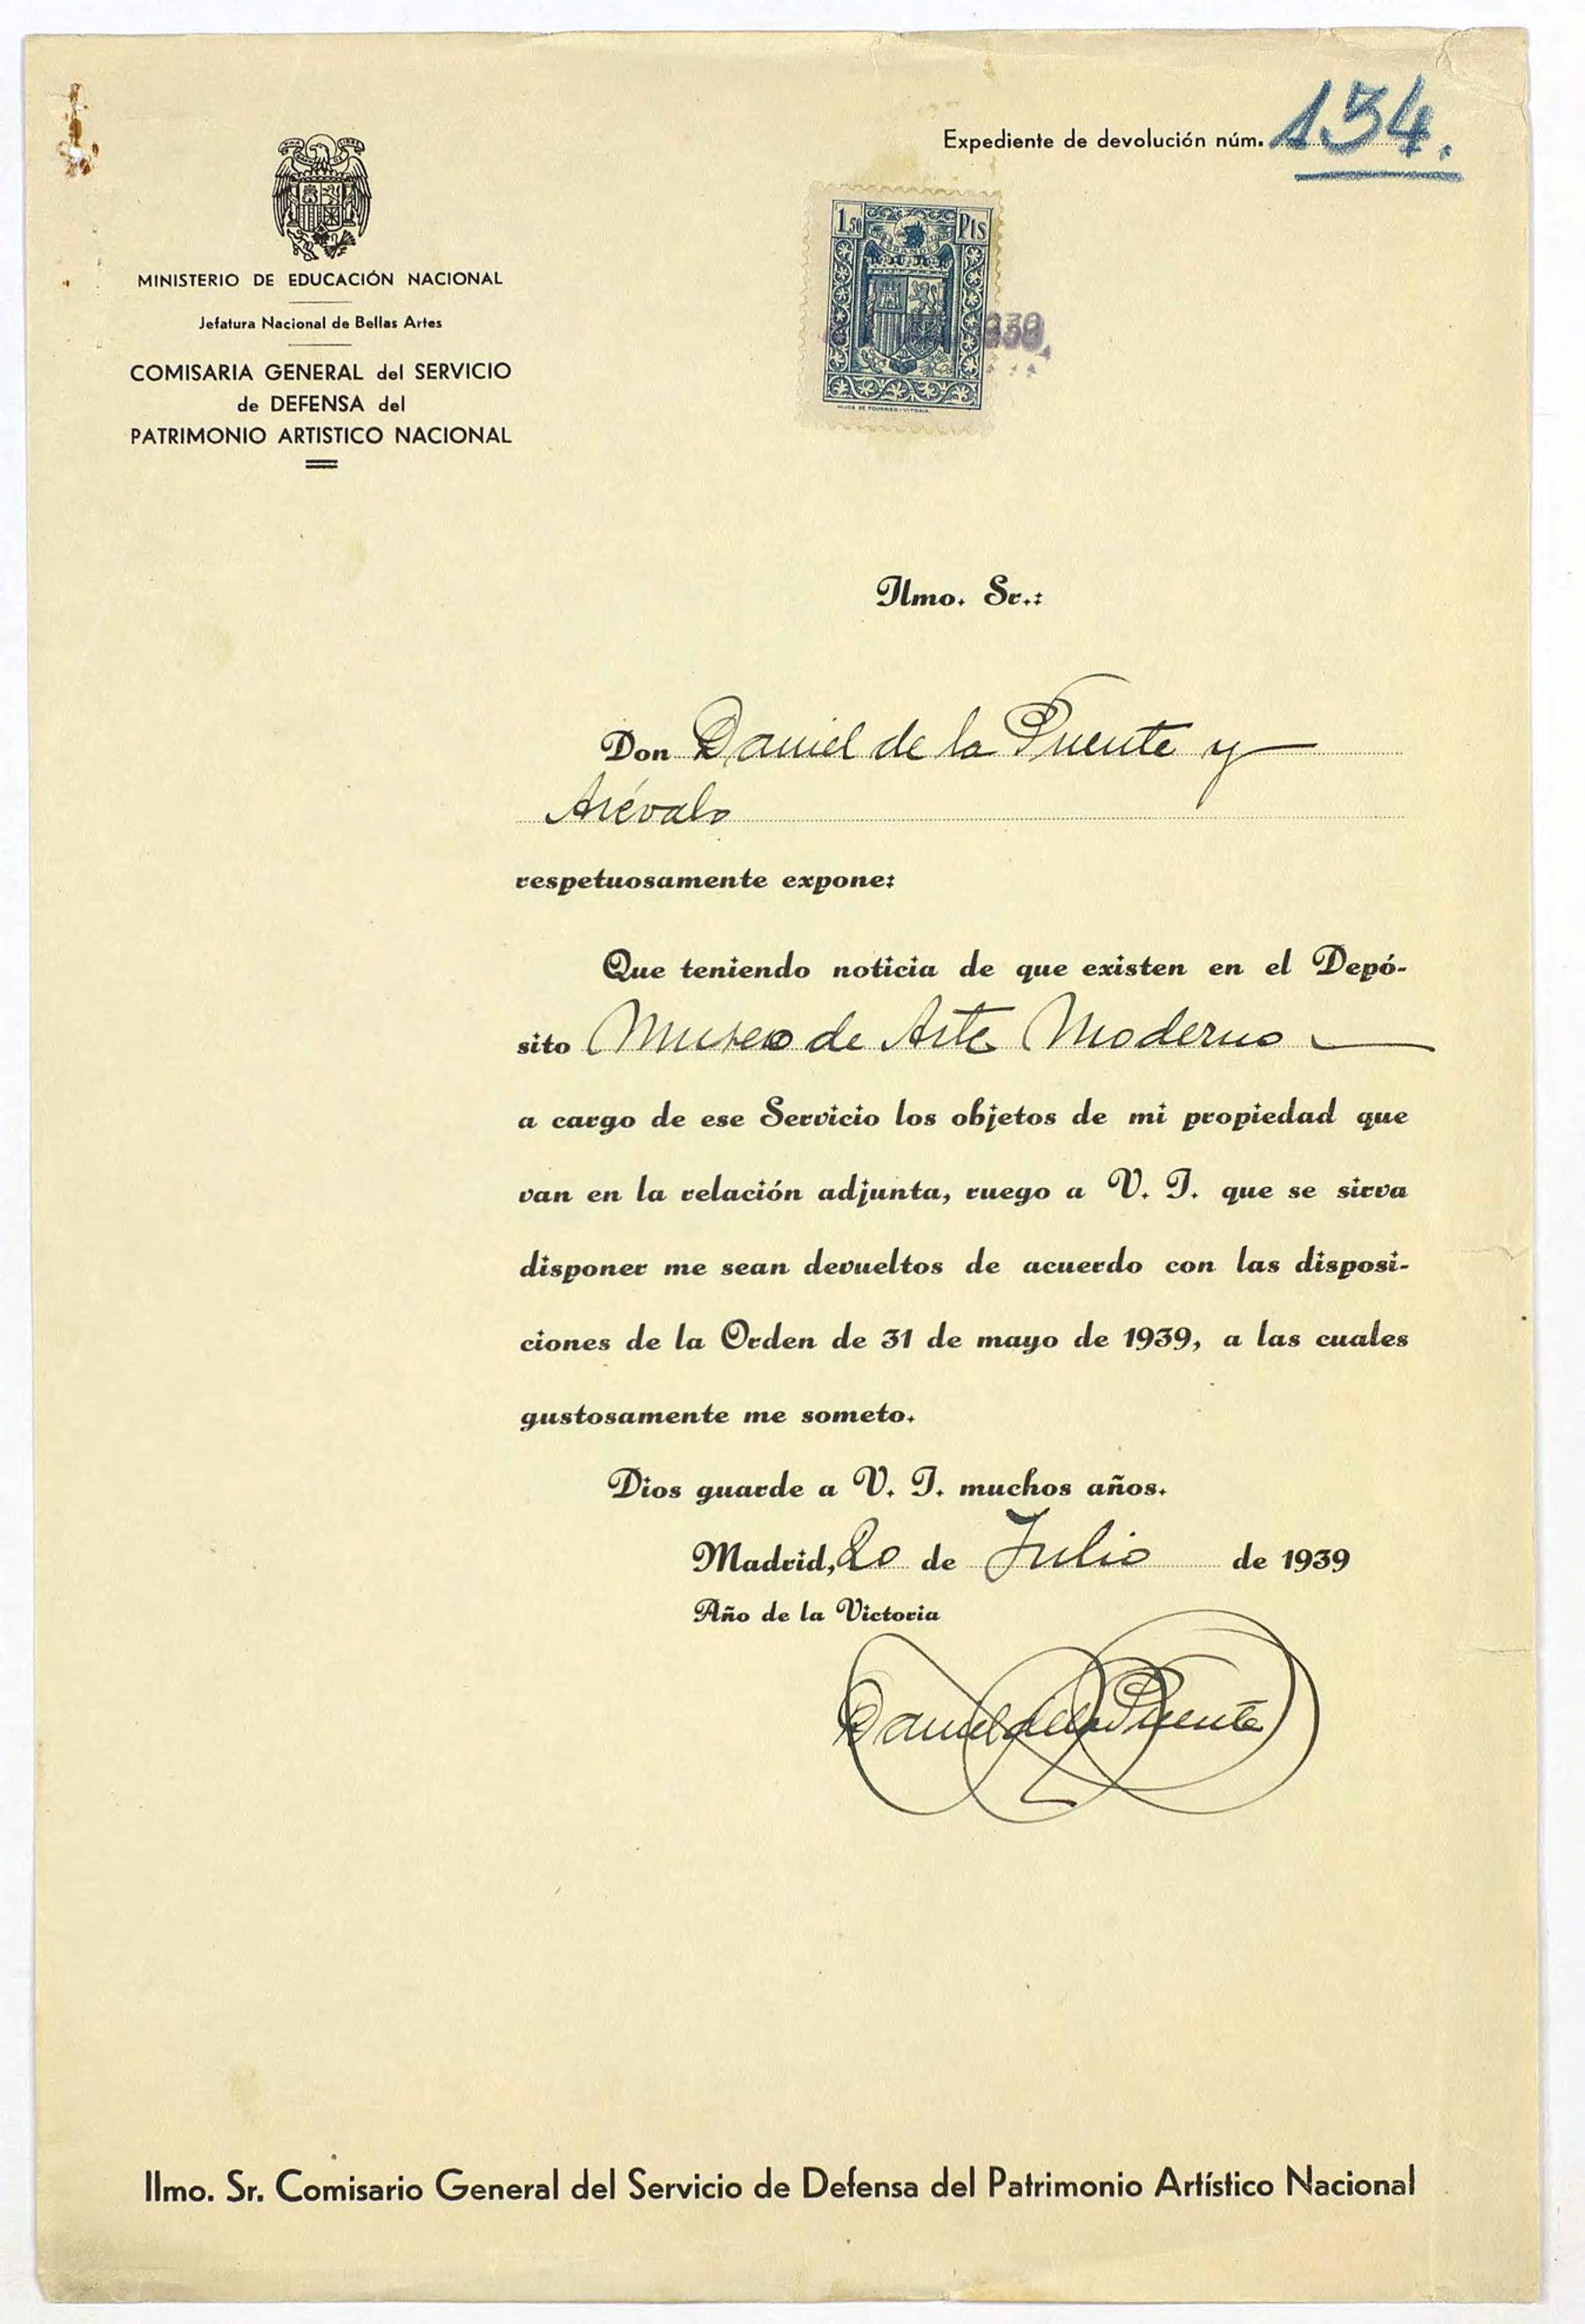 Expediente de devolución núm. 134.
MINISTERIO DE EDUCACIÓN NACIONAL
Jefatura Nacional de Bellas Artes
COMISARIA GENERAL del SERVICIO
de DEFENSA del
PATRIMONIO ARTISTICO NACIONAL
1,50 Pts
HIJOS DE FOURNIER - VITORIA
Ilmo. Sr.:
Don Daniel de la Puente y
Arévalo
respetuosamente expone:
Que teniendo noticia de que existen en el Depó-
sito Museo de Arte Moderno
a cargo de ese Servicio los objetos de mi propiedad que
van en la relación adjunta, ruego a V. I. que se sirva
disponer me sean devueltos de acuerdo con las disposi-
ciones de la Orden de 31 de mayo de 1939, a las cuales
gustosamente me someto.
Dios guarde a V. I. muchos años.
Madrid, 20 de Julio de 1939
Año de la Victoria
Daniel de la Puente
Ilmo. Sr. Comisario General del Servicio de Defensa del Patrimonio Artístico Nacional